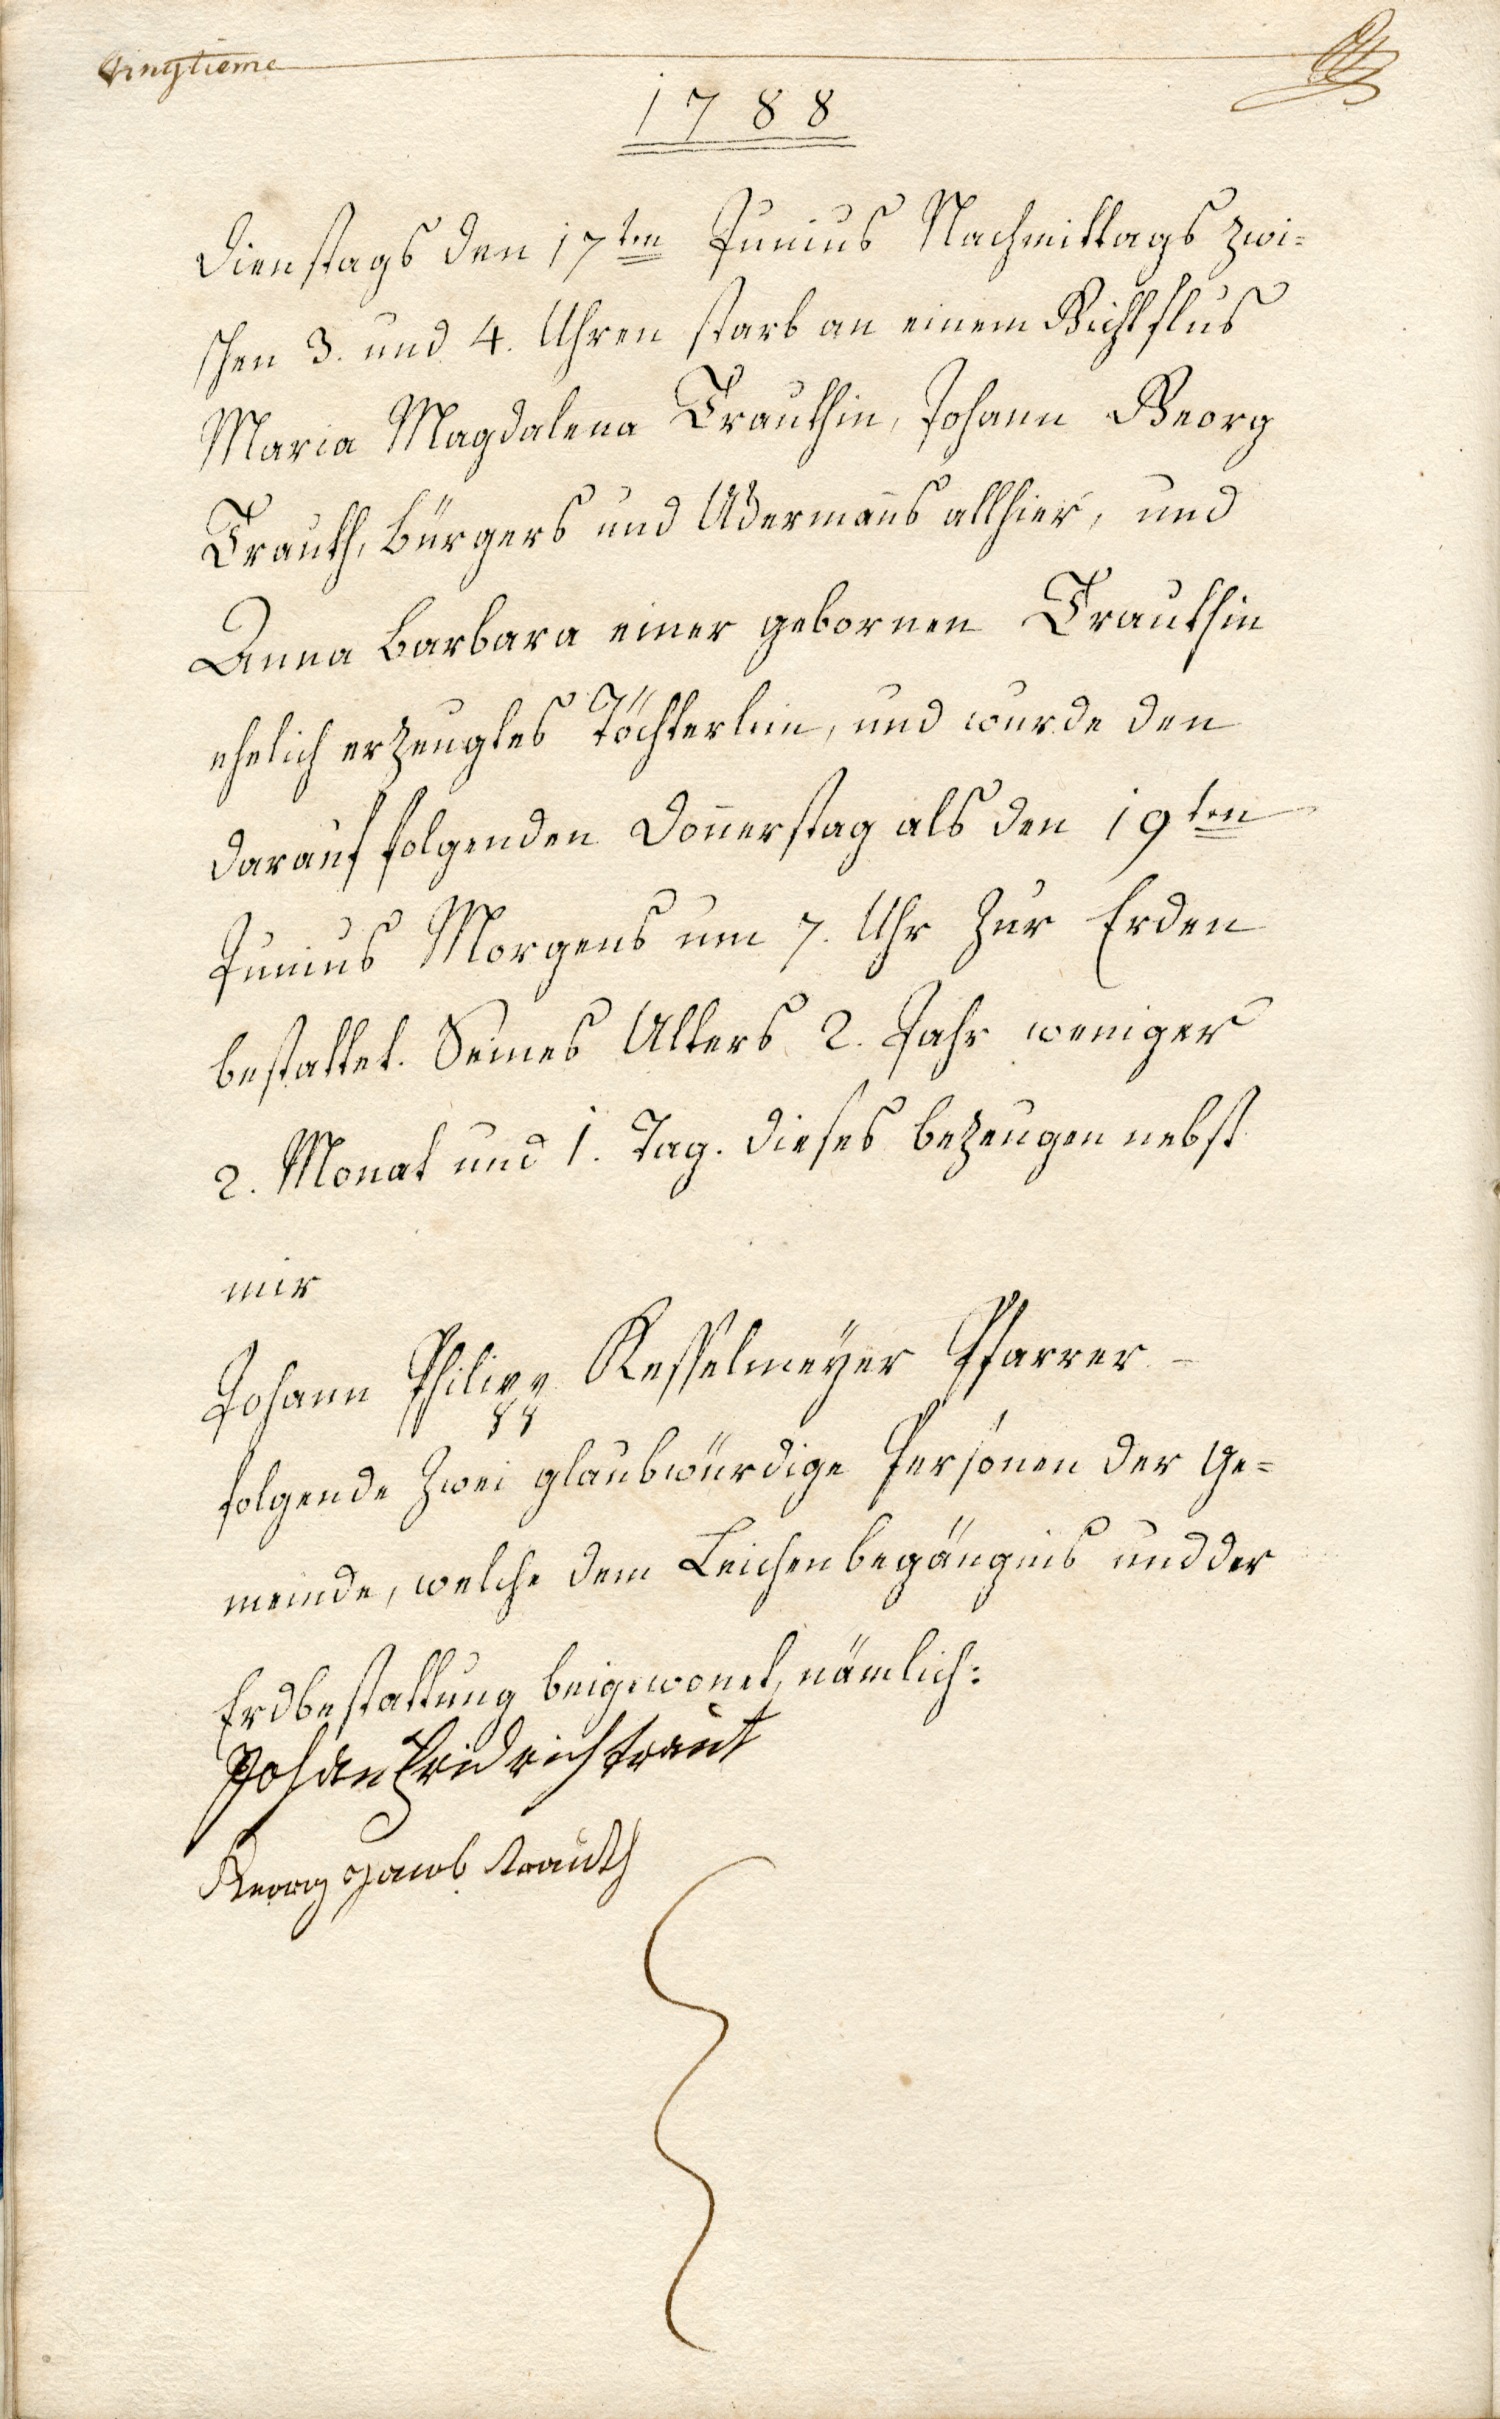 Vingtieme
1788
Dienstags den 17ten Junius Nachmittags zwi=
schen 3. und 4. Uhren starb an einem Gichtflus
Maria Magdalena Trauthin, Johann Georg
Trauth, Bürgers und Ackermans allhier, und
Anna Barbara einer gebornen Trauthin
ehelich erzeugtes Töchterlein, und wurde den
darauf folgenden Donnerstag als den 19ten
Junius Morgens um 7. Uhr zur Erden
bestattet. Seines Alters 2. Jahr weniger
2. Monat und 1. Tag. Dieses bezeugen nebst
mir
Johann Philipp Kesselmeyer Pfarrer
folgende zwei glaubwürdige Personen der Ge=
meinde, welche dem Leichenbegängnis und der
Erdbestattung beigewonet, nämlich:
Johan Fridrich traut
Georg Jacob trauth